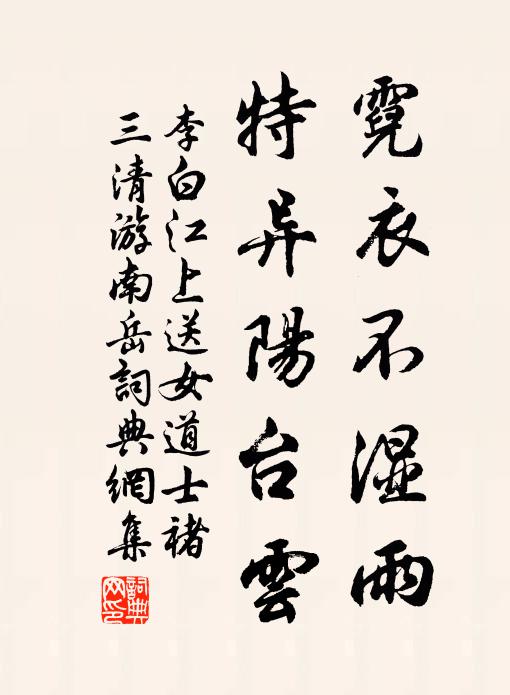 霓衣不湿雨
特异陽台雲
李白江上送女道士褚
三清游南岳詞典網集
詞典网印